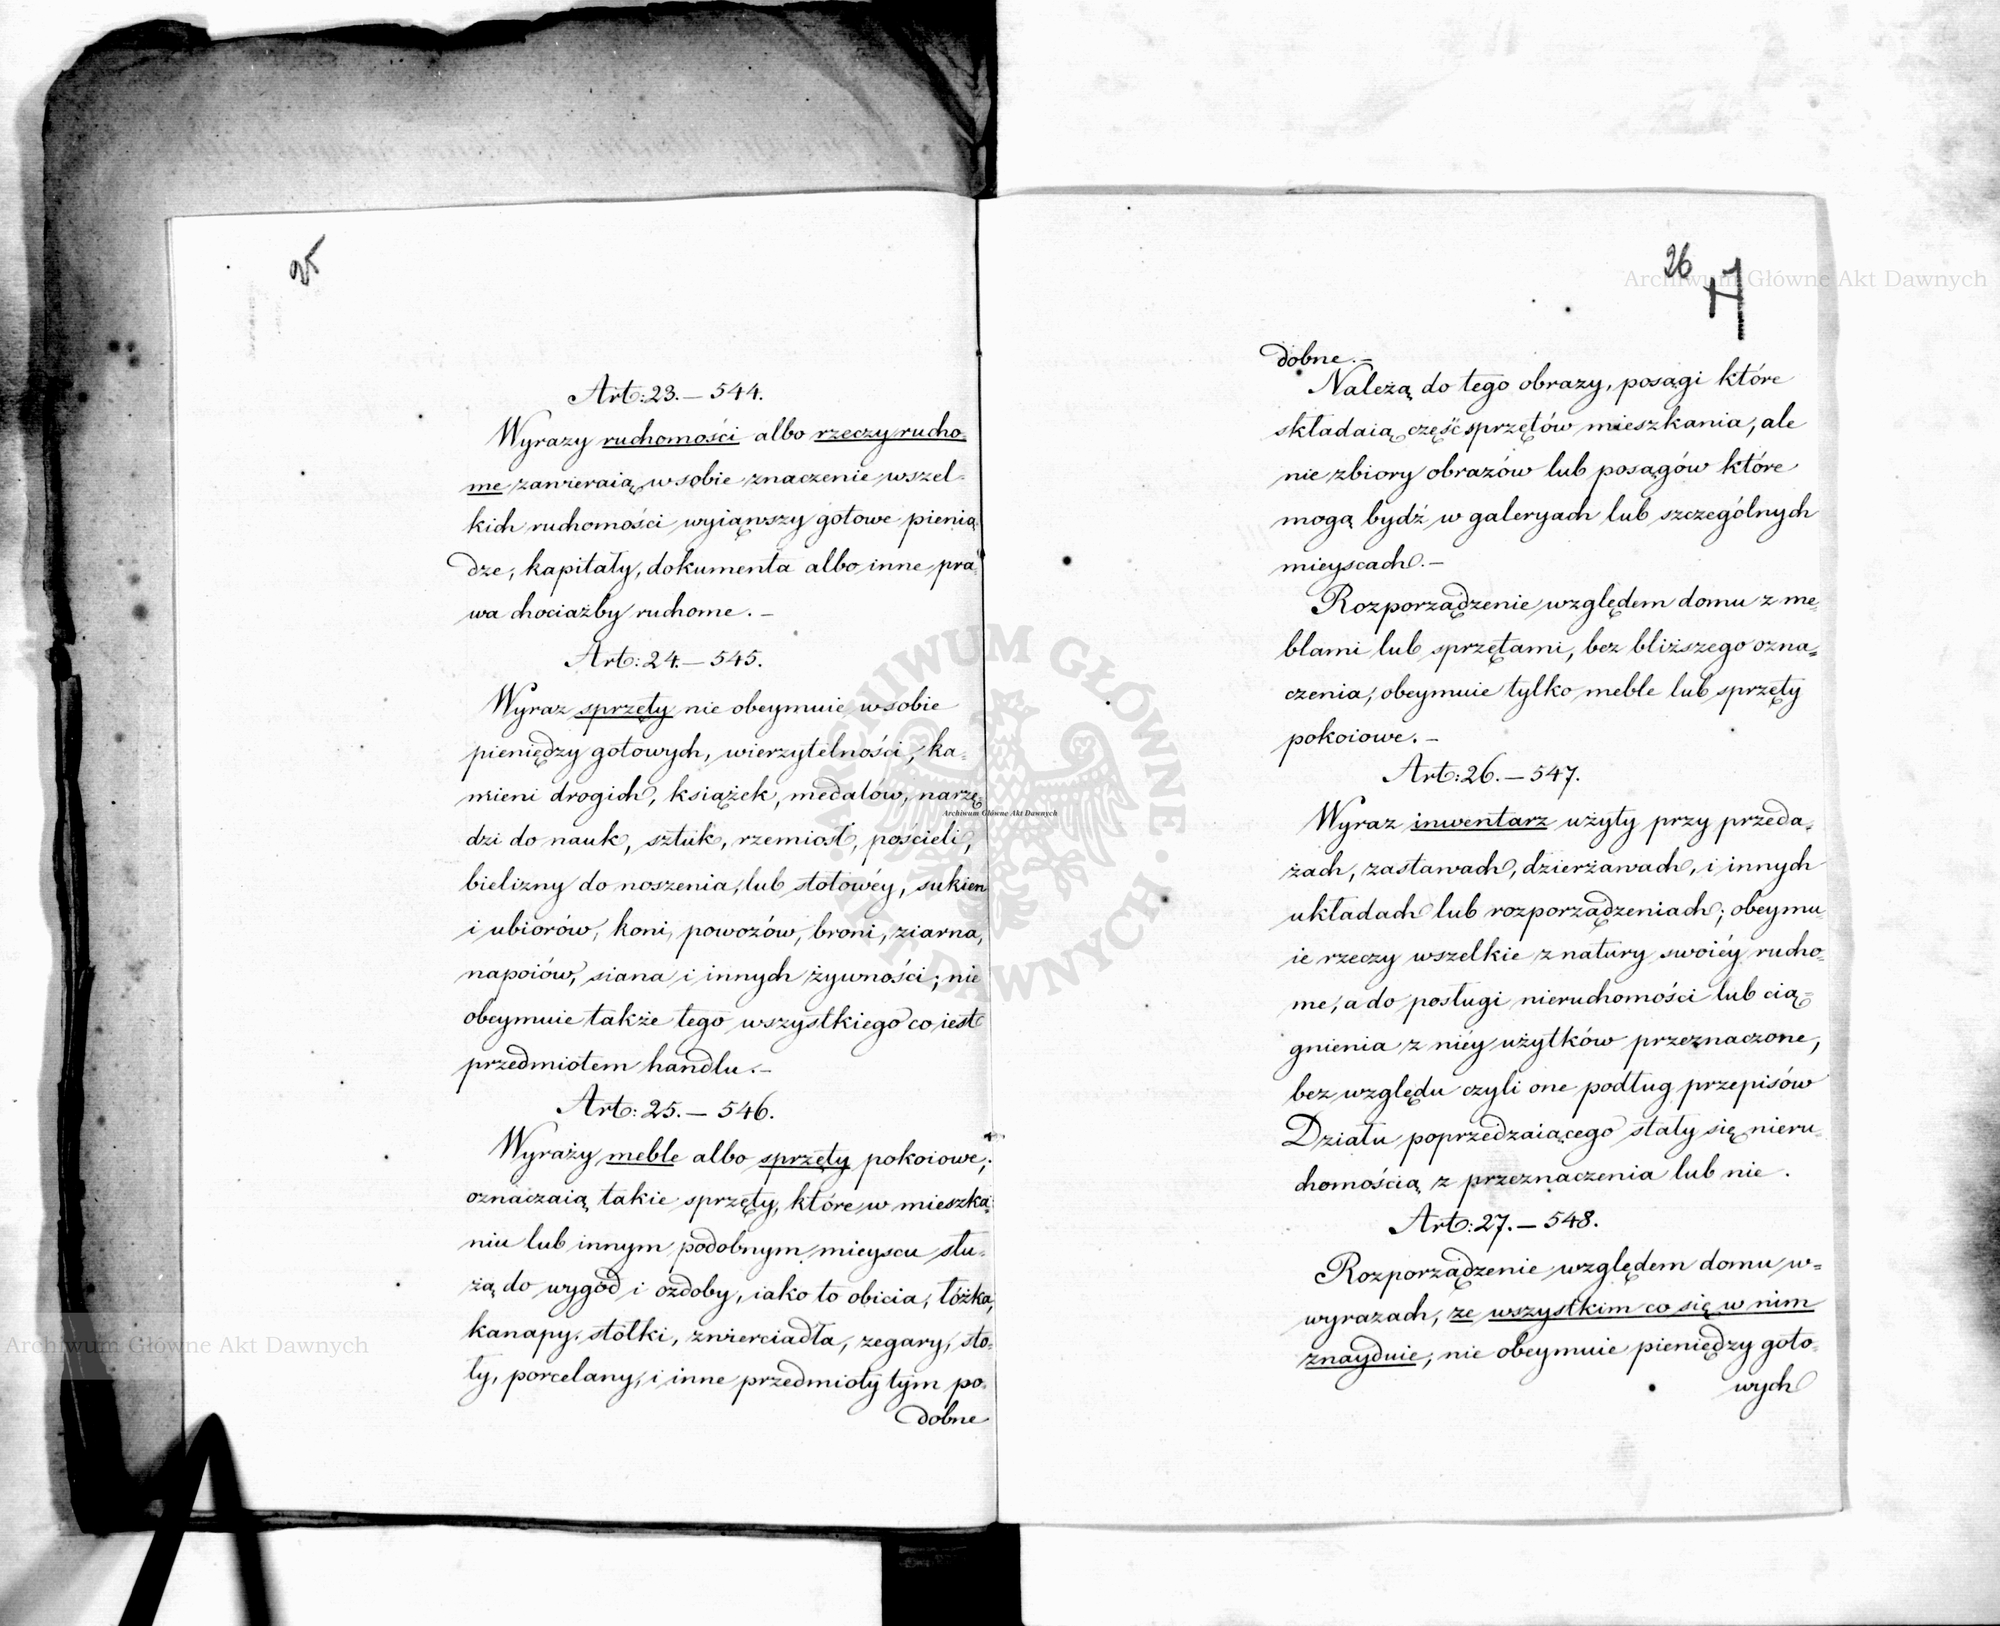 25
Art: 23. — 544.
Wyrazy ruchomości albo rzeczy rucho-
me zawieraią w sobie znaczenie wszel-
kich ruchomości wyiąwszy gotowe pienią
dze, kapitały, dokumenta albo inne pra-
wa chociażby ruchome. —
Art: 24. — 545.
Wyraz sprzęty nie obeymuie w sobie
pieniędzy gotowych, wierzytelności, ka-
mieni drogich, książek, medalów, narzę-
dzi do nauk, sztuk, rzemiosł, pościeli,
bielizny do noszenia, lub stołowéy, sukien
i ubiorów, koni, powozów, broni, ziarna,
napoiów, siana i innych żywności; nie
obeymuie także tego wszystkiego co iest
przedmiotem handlu. —
Art: 25. — 546.
Wyraży meble albo sprzęty pokoiowe,
oznaczaią takie sprzęty, które w mieszka-
niu lub innym podobnym mieyscu słu-
żą do wygod i ozdoby, iako to obicia, łóżka,
kanapy, stołki, zwierciadła, zegary, sto-
ły, porcelany, i inne przedmioty tym po-
dobne
26
dobne. —
Należą do tego obrazy, posągi które
składaią część sprzętów mieszkania, ale
nie zbiory obrazów lub posągów które
mogą bydź w galeryach lub szczególnych
mieyscach. —
Rozporządzenie względem domu z me-
blami lub sprzętami, bez bliższego ozna-
czenia, obeymuie tylko meble lub sprzęty
pokoiowe. —
Art: 26. — 547.
Wyraz inwentarz użyty przy przeda-
żach, zastawach, dzierżawach, i innych
układach lub rozporządzeniach; obeymu-
ie rzeczy wszelkie z natury swoiéy rucho-
me, a do posługi nieruchomości lub cią-
gnienia z niéy użytków przeznaczone,
bez względu czyli one podług przepisów
Działu poprzedzaiącego stały się nieru-
chomością z przeznaczenia lub nie.
Art: 27. — 548.
Rozporządzenie względem domu w-
wyrazach, ze wszystkim co się w nim
znayduie, nie obeymuie pieniędzy goto-
wych
Archiwum Główne Akt Dawnych
Archiwum Główne Akt Dawnych
Archiwum Główne Akt Dawnych
ARCHIWUM GŁÓWNE · AKT DAWNYCH ·